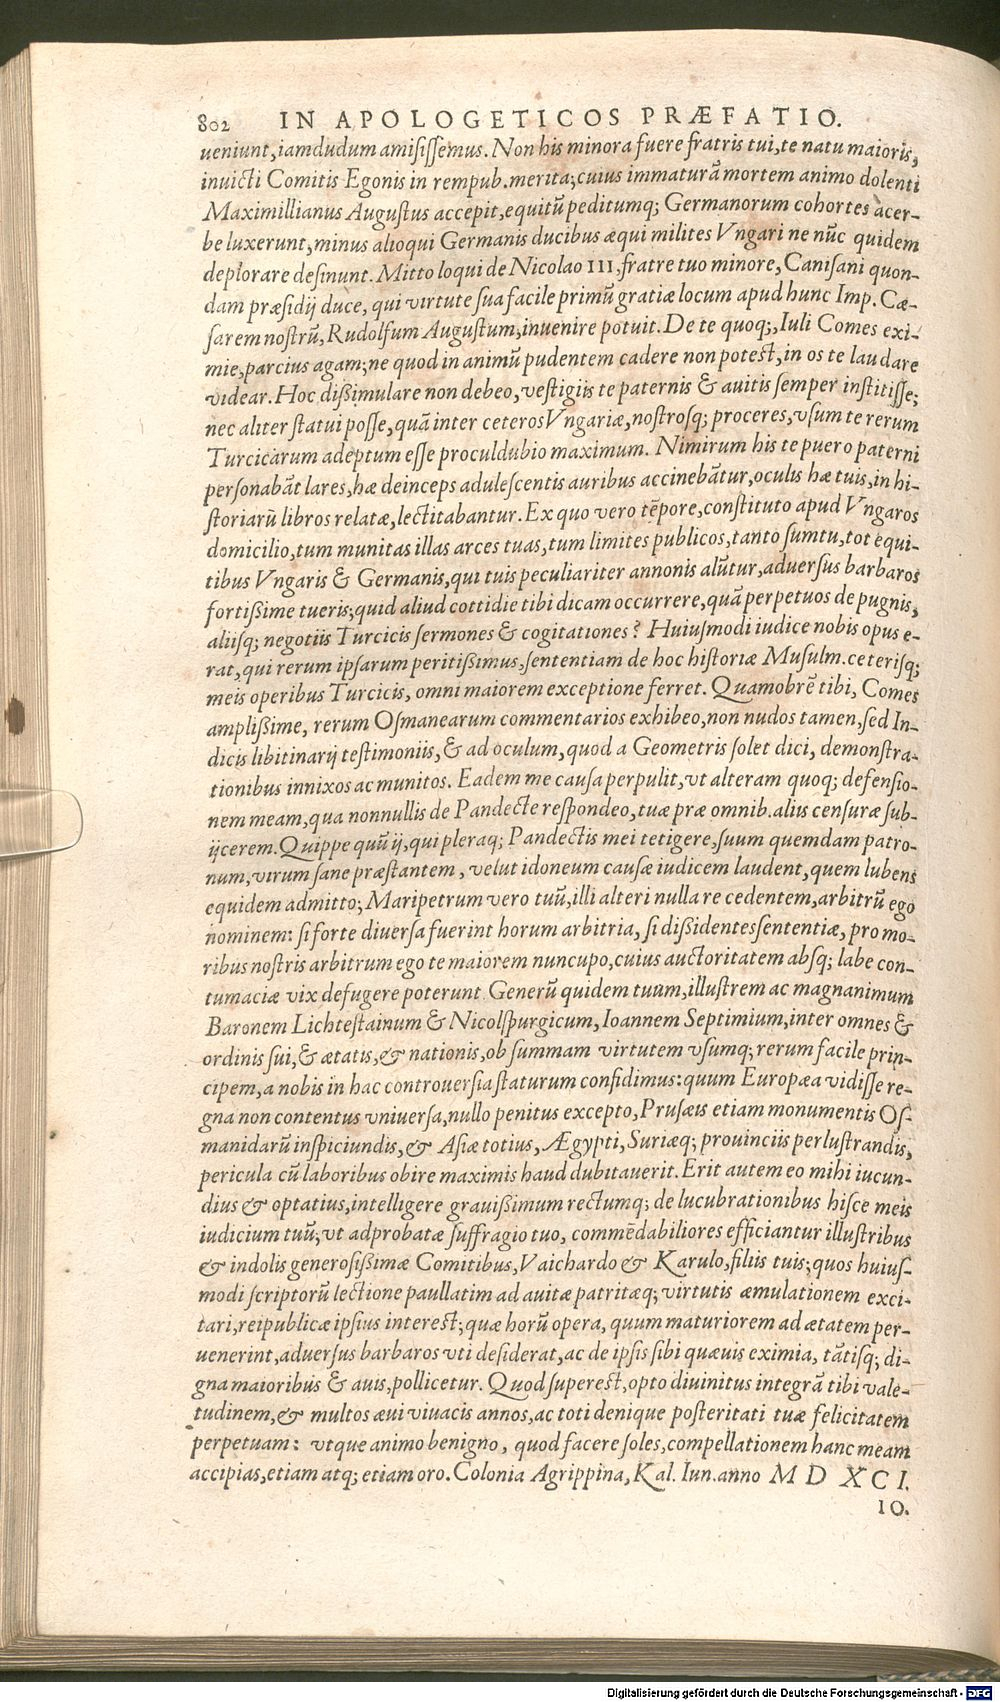 802 IN APOLOGETICOS PRÆFATIO.
ueniunt, iamdudum amisissemus. Non his minora fuere fratris tui, te natu maioris,
inuicti Comitis Egonis in rempub. merita; cuius immaturā mortem animo dolenti
Maximillianus Augustus accepit, equitū peditumq; Germanorum cohortes acer-
be luxerunt, minus alioqui Germanis ducibus æqui milites Vngari ne nūc quidem
deplorare desinunt. Mitto loqui de Nicolao III, fratre tuo minore, Canisani quon-
dam præsidij duce, qui virtute sua facile primū gratiæ locum apud hunc Imp. Cæ-
sarem nostrū, Rudolfum Augustum, inuenire potuit. De te quoq;, Iuli Comes exi-
mie, parcius agam; ne quod in animū pudentem cadere non potest, in os te laudare
videar. Hoc dißimulare non debeo, vestigiis te paternis & auitis semper institisse;
nec aliter statui posse, quā inter ceteros Vngariæ, nostrosq; proceres, vsum te rerum
Turcicarum adeptum esse proculdubio maximum. Nimirum his te puero paterni
personabāt lares, hæ deinceps adulescentis auribus accinebātur, oculis hæ tuis, in hi-
storiarū libros relatæ, lectitabantur. Ex quo vero tēpore, constituto apud Vngaros
domicilio, tum munitas illas arces tuas, tum limites publicos, tanto sumtu, tot equi-
tibus Vngaris & Germanis, qui tuis peculiariter annonis alūtur, aduersus barbaros
fortißime tueris; quid aliud cottidie tibi dicam occurrere, quā perpetuos de pugnis,
aliisq; negotiis Turcicis sermones & cogitationes? Huiusmodi iudice nobis opus e-
rat, qui rerum ipsarum peritißimus, sententiam de hoc historiæ Musulm. ceterisq;
meis operibus Turcicis, omni maiorem exceptione ferret. Quamobrē tibi, Comes
amplißime, rerum Osmanearum commentarios exhibeo, non nudos tamen, sed In-
dicis libitinarij testimoniis, & ad oculum, quod a Geometris solet dici, demonstra-
tionibus innixos ac munitos. Eadem me causa perpulit, vt alteram quoq; defensio-
nem meam, qua nonnullis de Pandecte respondeo, tuæ præ omnib. aliis censuræ sub-
ijcerem. Quippe quū ij, qui pleraq; Pandectis mei tetigere, suum quemdam patro-
num, virum sane præstantem, velut idoneum causæ iudicem laudent, quem lubens
equidem admitto; Maripetrum vero tuū, illi alteri nulla re cedentem, arbitrū ego
nominem: si forte diuersa fuerint horum arbitria, si dißidentes sententiæ, pro mo-
ribus nostris arbitrum ego te maiorem nuncupo, cuius auctoritatem absq; labe con-
tumaciæ vix defugere poterunt Generū quidem tuum, illustrem ac magnanimum
Baronem Lichtestainum & Nicolspurgicum, Ioannem Septimium, inter omnes &
ordinis sui, & ætatis, & nationis, ob summam virtutem vsumq; rerum facile prin-
cipem, a nobis in hac controuersia staturum confidimus: quum Europæa vidisse re-
gna non contentus vniuersa, nullo penitus excepto, Prusæis etiam monumentis Os-
manidarū inspiciundis, & Asiæ totius, Ægypti, Suriæq; prouinciis perlustrandis,
pericula cū laboribus obire maximis haud dubitauerit. Erit autem eo mihi iucun-
dius & optatius, intelligere grauißimum rectumq; de lucubrationibus hisce meis
iudicium tuū; vt adprobatæ suffragio tuo, commēdabiliores efficiantur illustribus
& indolis generosißimæ Comitibus, Vaichardo & Karulo, filiis tuis; quos huius-
modi scriptorū lectione paullatim ad auitæ patritæq; virtutis æmulationem exci-
tari, reipublicæ ipsius interest; quæ horū opera, quum maturiorem ad ætatem per-
venerint, aduersus barbaros vti desiderat, ac de ipsis sibi quæuis eximia, tātisq; di-
gna maioribus & auis, pollicetur. Quod superest, opto diuinitus integrā tibi vale-
tudinem, & multos æui viuacis annos, ac toti denique posteritati tuæ felicitatem
perpetuam: vtque animo benigno, quod facere soles, compellationem hanc meam
accipias, etiam atq; etiam oro. Colonia Agrippina, Kal. Iun. anno M D XCI.
IO.
Digitalisierung gefördert durch die Deutsche Forschungsgemeinschaft - DFG